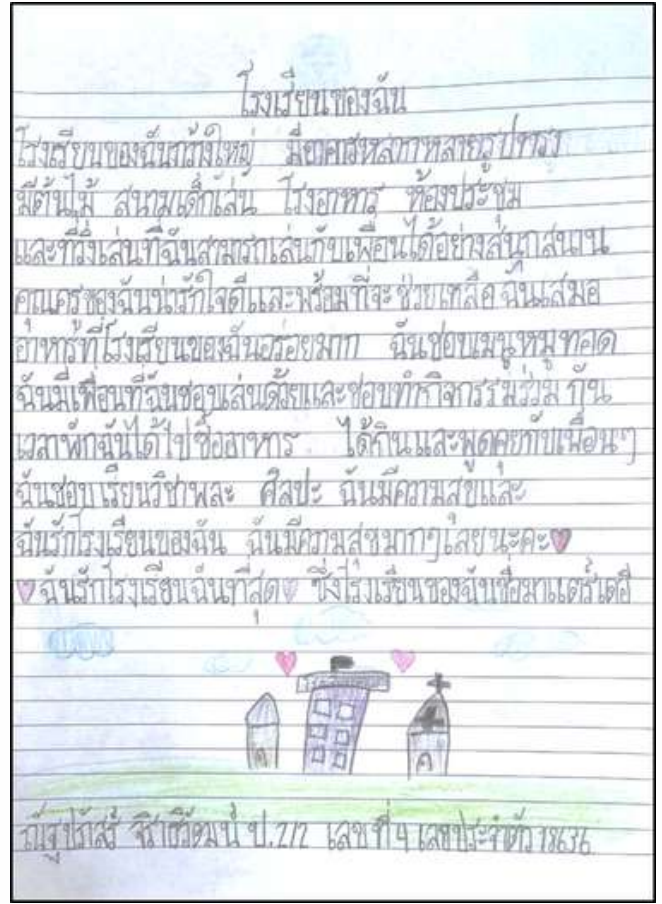 โรงเรียนของฉัน
โรงเรียนของฉันกว้างใหญ่ มีอาคารหลากหลายรูปทรง
มีต้นไม้ สนามเด็กเล่น โรงอาหาร ห้องประชุม
และที่วิ่งเล่นที่ฉันสามารถเล่นกับเพื่อนได้อย่างสนุกสนาน
คุณครูของฉันน่ารักใจดีและพร้อมที่จะช่วยเหลือฉันเสมอ
อาหารที่โรงเรียนของฉันอร่อยมาก ฉันชอบเมนูหมูทอด
ฉันมีเพื่อนที่ฉันชอบเล่นด้วยและชอบทำกิจกรรมร่วมกัน
เวลาพักฉันได้ไปซื้ออาหาร ได้กินและพูดคุยกับเพื่อนๆ
ฉันชอบเรียนวิชาพละ ศิลปะ ฉันมีความสุขและ
ฉันรักโรงเรียนของฉัน ฉันมีความสุขมากๆเลยนะคะ
ฉันรักโรงเรียนฉันที่สุด ซึ่งโรงเรียนของฉันชื่อมาแตร์เดอี
ป.2/2 เลขที่ 4 เลขประจำตัว